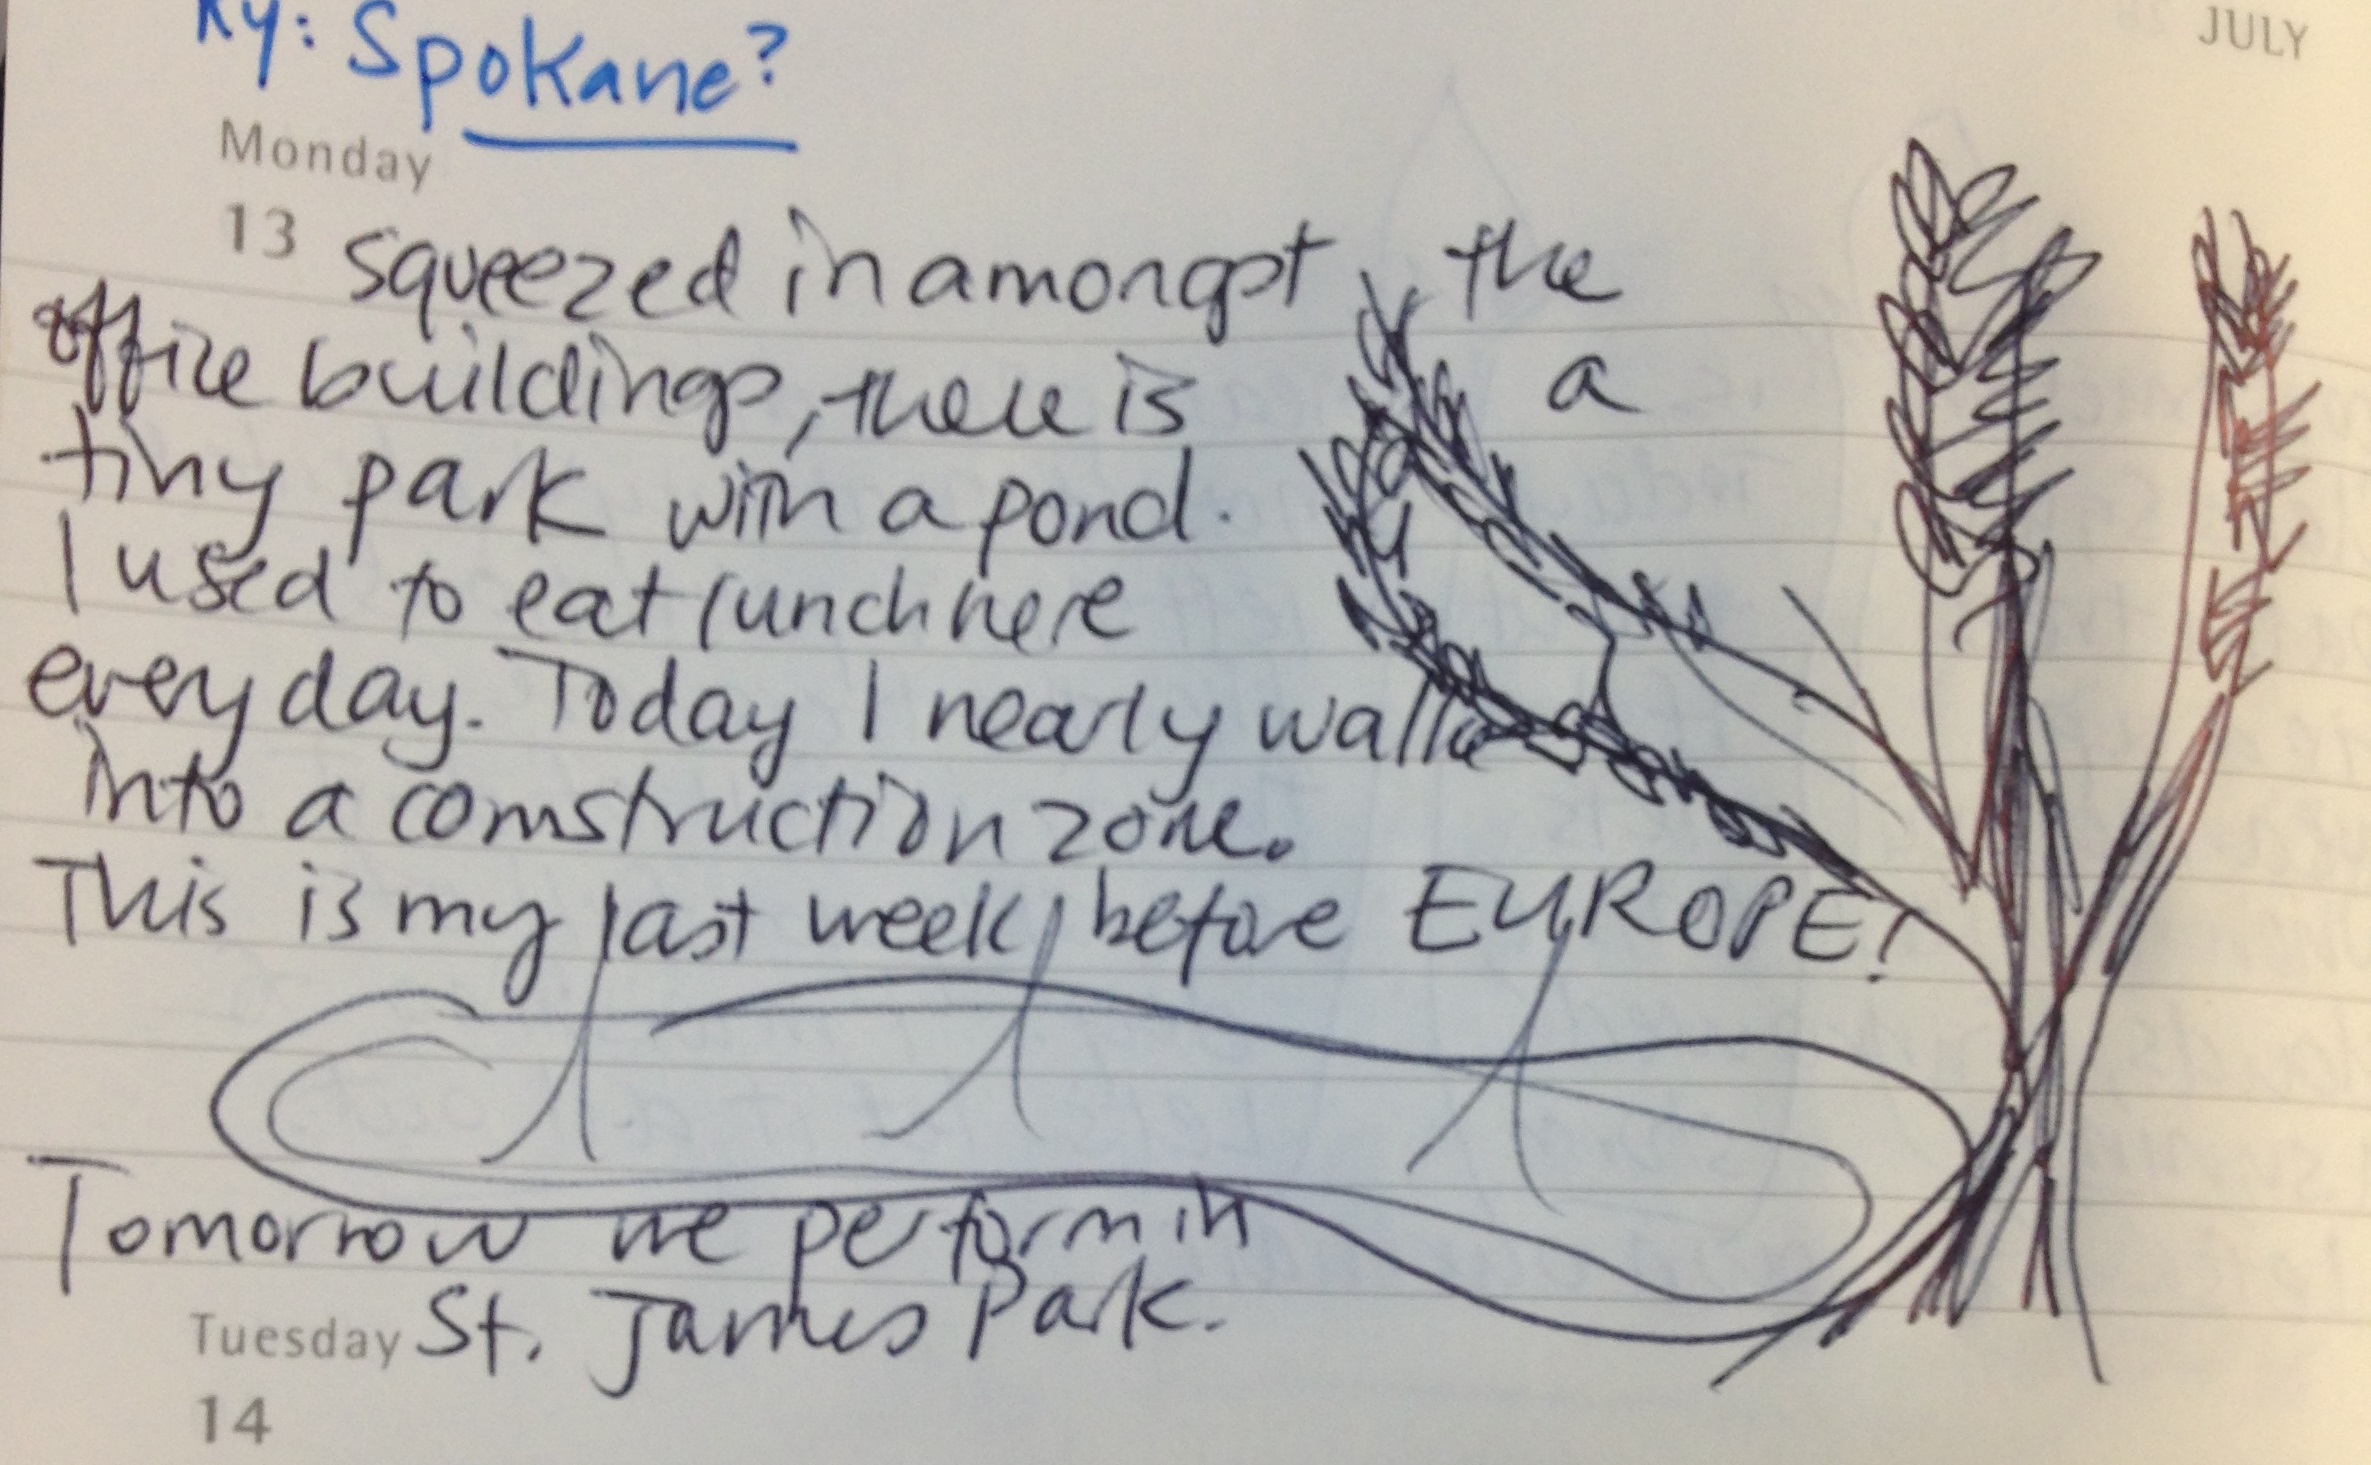 Ky: Spokane?
JULY
Monday
13 squeezed in amongst the
office buildings, there is a
tiny park with a pond.
I used to eat lunch here
every day. Today I nearly walked
into a comstruction zone.
This is my last week before EUROPE!
Tomorrow we perform in
Tuesday St. James Park.
14